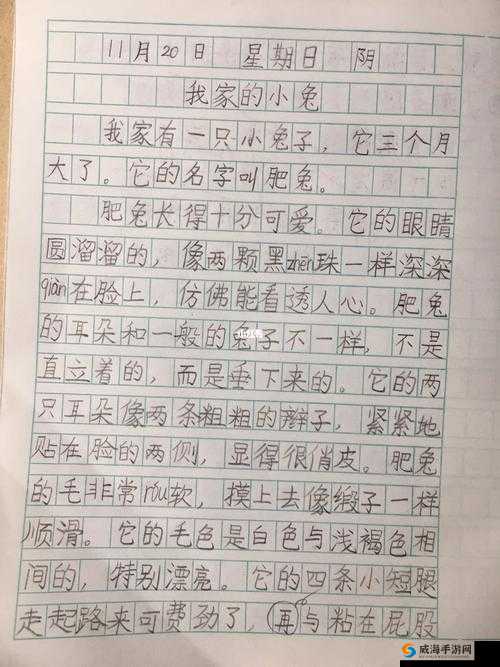 11月20日 星期日 阴
我家的小兔
我家有一只小兔子，它三个月
大了。它的名字叫肥兔。
肥兔长得十分可爱。它的眼睛
圆溜溜的，像两颗黑zhēn珠一样深深
qiàn在脸上，仿佛能看透人心。肥兔
的耳朵和一般的兔子不一样，不是
直立着的，而是垂下来的。它的两
只耳朵像两条粗粗的辫子，紧紧地
贴在脸的两侧，显得很俏皮。肥兔
的毛非常róu软，摸上去像缎子一样
顺滑。它的毛色是白色与浅褐色相
间的，特别漂亮。它的四条小短腿
走起路来可费劲了，再与粘在屁股
威海手游网